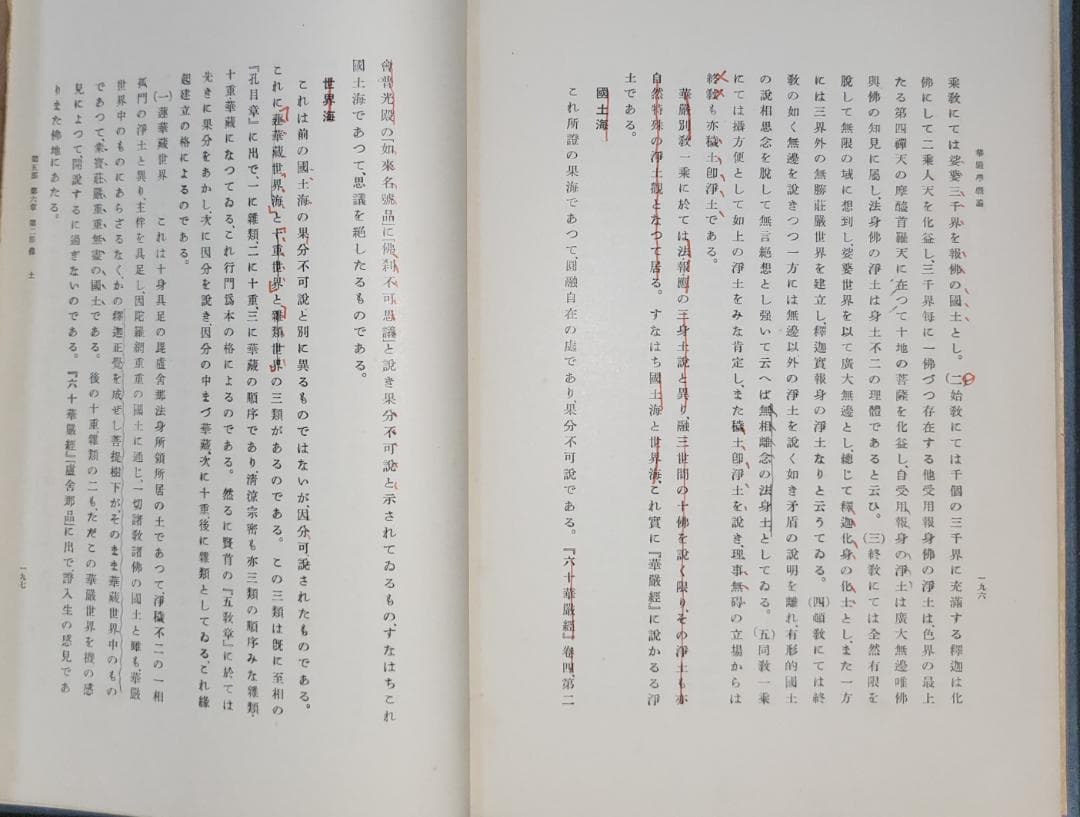 華嚴學槪論
一九六
乘敎にては娑婆三千界を報佛の國土とし。(二)始敎にては千個の三千界に充滿する釋迦は化
佛にして二乘人天を化益し、三千界每に一佛づつ存在する他受用報身佛の淨土は、色界の最上
たる第四禪天の摩醯首羅天に在つて十地の菩薩を化益し、自受用報身の淨土は廣大無邊唯佛
與佛の知見に屬し法身佛の淨土は身土不二の理體であると云ひ。(三)終敎にては全然有限を
脫して無限の域に想到し娑婆世界を以て廣大無邊とし總じて釋迦化身の化土とし、また一方
には三界外の無勝莊嚴世界を建立し、釋迦實報身の淨土なりと云うてゐる。(四)頓敎にては終
敎の如く無邊を說きつつ一方には無邊以外の淨土を說く如き矛盾の說明を離れ、有形的國土
の說相思念を脫して無言絕想とし强いて云へば無相離念の法身土としてゐる。(五)同敎一乘
にては攝方便として如上の淨土をみな肯定し、また穢土卽淨土を說き、理事無碍の立場からは
終敎も亦穢土卽淨土である。
華嚴別敎一乘に於ては法報應の三身土說と異り、融三世間の十佛を說く限り、その淨土も亦
自然特殊の淨土觀となつて居る。すなはち國土海と世界海、これ實に『華嚴經』に說かるる淨
土である。
國土海
これ所證の果海であつて、圓融自在の處であり、果分不可說である。『六十華嚴經』卷四、第二
會普光殿の如來名號品に「佛刹不可思議」と說き果分不可說と示されてゐるもの、すなはちこれ
國土海であつて、思議を絕したるものである。
世界海
これは前の國土海の果分不可說と別に異るものではないが、因分可說されたものである。
これに蓮華藏世界海と十重世界と雜類世界の三類があるのである。この三類は既に至相の
『孔目章』に出で、一に雜類二に十重、三に華藏の順序であり、淸涼宗密も亦三類の順序みな雜類、
十重華藏になつてゐる、これ行門爲本の格によるのである。然るに賢首の『五敎章』に於ては
先きに果分をあかし、次に因分を說き、因分の中まづ華藏、次に十重後に雜類としてゐる、これ緣
起建立の格によるものである。
(一)蓮華藏世界 これは十身具足の毘盧舍那法身所領所居の土であつて、淨穢不二の一相
孤門の淨土と異り、主伴を具足し、因陀羅網重重の國土に通じ、一切諸敎諸佛の國土と雖も、華嚴
世界中のものにあらざるなく、かの釋迦正覺を成ぜし菩提樹下が、そのまま華藏世界中のもの
であつて、衆寶莊嚴重重無盡の國土である。後の十重、雜類の二も、ただこの華嚴世界を機の感
見によつて、開說するに過ぎないのである。『六十華嚴經』「盧舍那品」に出で、證入生の感見であ
りまた佛地にあたる。
第五部 第六章 第二部 佛土
一九七